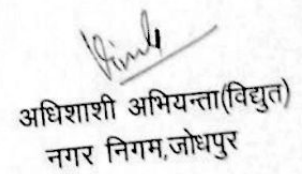 अधिशाशी अभियन्ता(विद्युत)
नगर निगम,जोधपुर